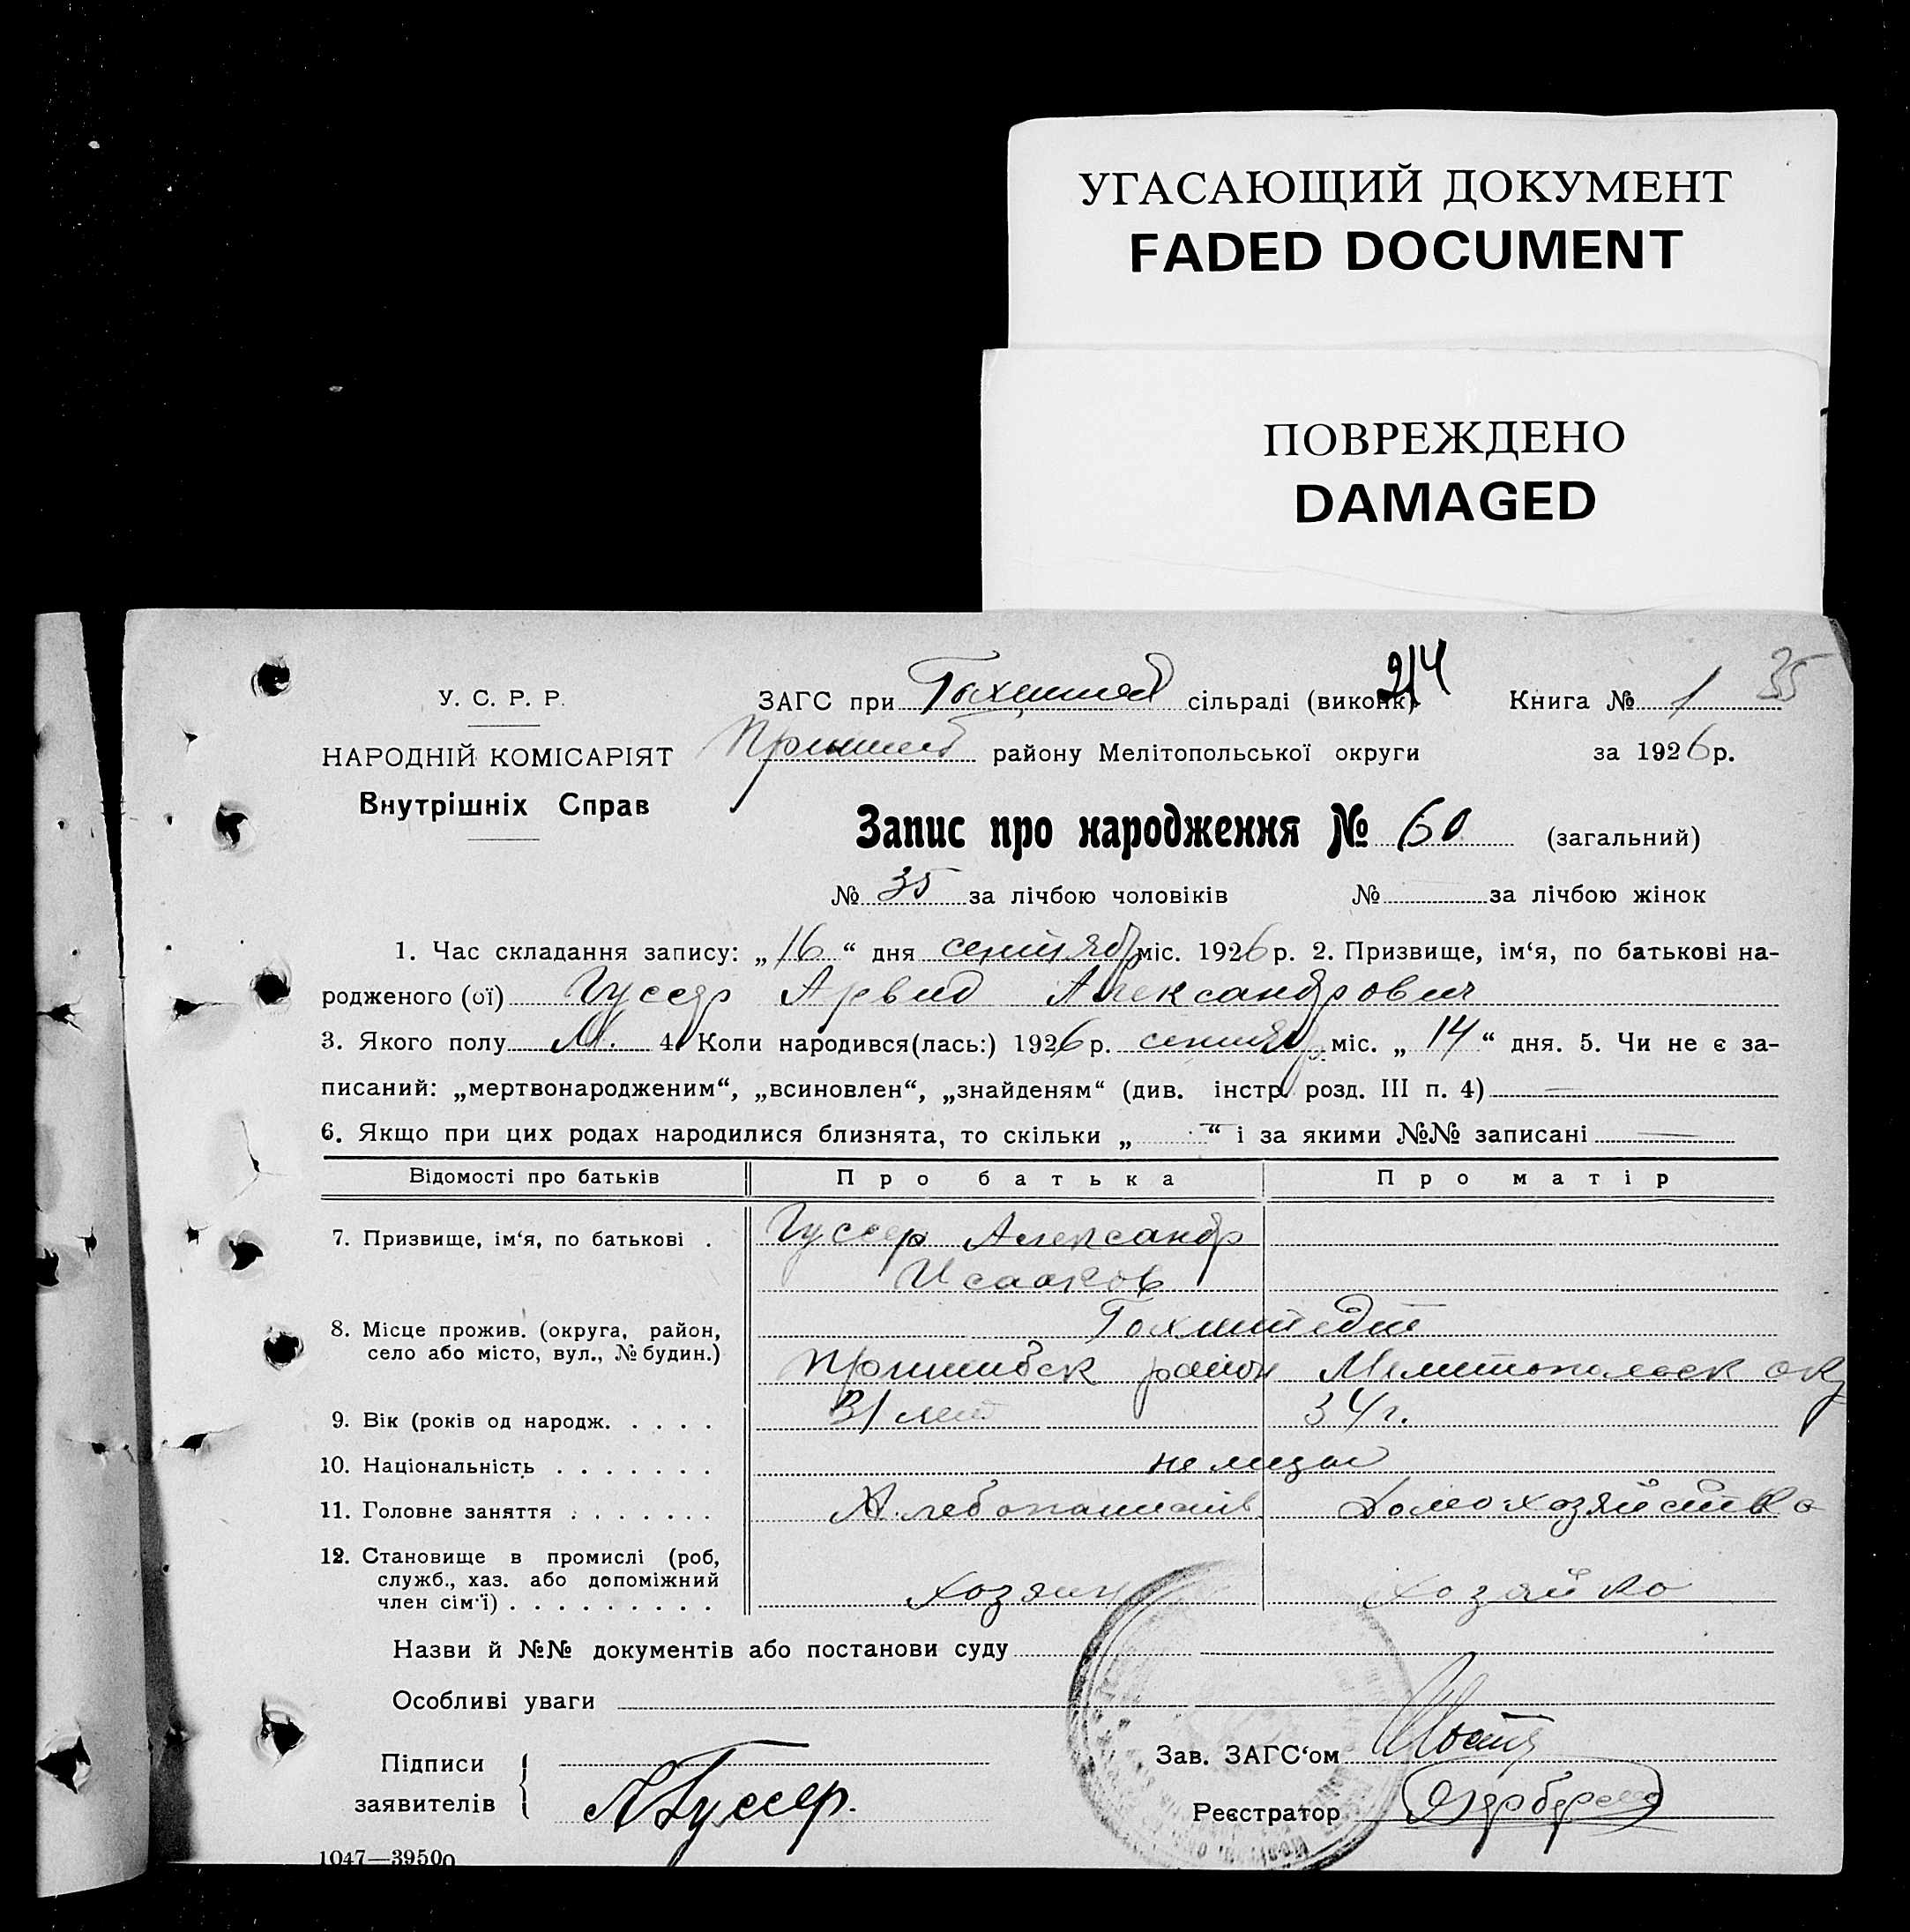 УГАСАЮЩИЙ ДОКУМЕНТ
FADED DOCUMENT
ПОВРЕЖДЕНО
DAMAGED
214
35
У. С. Р. Р.
ЗАГС при Гохштед сільраді (виконк) Книга № 1
НАРОДНІЙ КОМІСАРІЯТ
Пришиб району Мелітопольської округи за 1926 р.
Внутрішніх Справ
Запис про народження № 60 (загальний)
№ 35 за лічбою чоловіків № за лічбою жінок
1. Час складання запису: „16“ дня сентябр міс. 1926 р. 2. Призвище, ім‘я, по батькові на-
родженого (ої) Гуссер Арвид Александрович
3. Якого полу М. 4. Коли народився(лась:) 1926 р. сентябр. міс. „14“ дня. 5. Чи не є за-
писаний: „мертвонародженим“, „всиновлен“, „знайденям“ (див. інстр. розд. III п. 4) —
6. Якщо при цих родах народилися близнята, то скільки „ — “ і за якими №№ записані —
Відомості про батьків Про батька Про матір
7. Призвище, ім‘я, по батькові . Гуссер Александр
Исааков
8. Місце прожив. (округа, район, Гохштедт
село або місто, вул., № будин.) Пришибск район Мелитопольск окр
9. Вік (років од народж. . . . . 31 лет 34 г.
10. Національність . . . . . . . немцы
11. Головне заняття . . . . . . . Хлебопашеств. Домохозяйство
12. Становище в промислі (роб,
служб., хаз. або допоміжний
член сім‘ї) . . . . . . . . . Хозяин Хозяйка
Назви й №№ документів або постанови суду
Особливі уваги
Підписи Зав. ЗАГС‘ом
заявителів АГуссер. Реєстратор
1047—39500